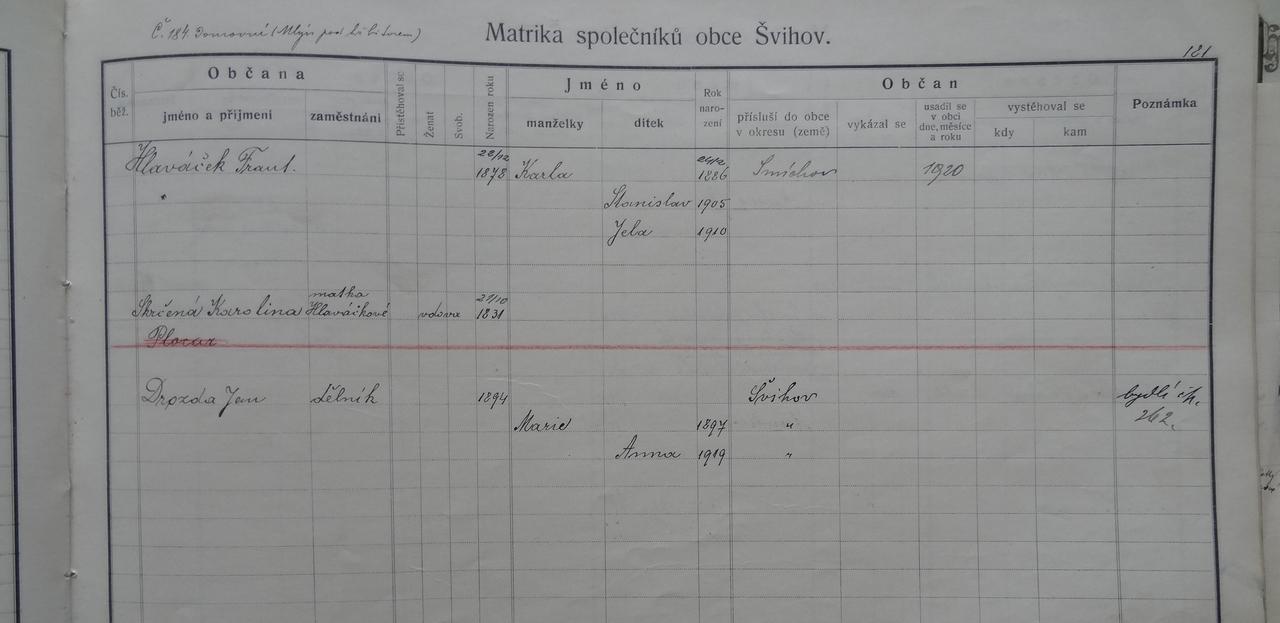 Č. 184 Domovní (Mlýn pod
Matrika společníků obce Švihov.
181
Čís. běž.
Občana
jméno a příjmení
zaměstnání
Přistěhoval se
Ženat
Svob.
Narozen roku
Jméno
manželky
dítek
Rok naro- zení
Občan
přísluší do obce v okresu (země)
vykázal se
usadil se v obci dne, měsíce a roku
vystěhoval se
kdy
kam
Poznámka
22/12 24/12
Hlaváček Frant. 1878 Karla 1886 Smíchov 1920
Stanislav 1905
Jela 1910
matka
Skrčená Karolina Hlaváčkové vdova 1831
Plocar
Drozda Jan dělník 1894 Švihov bydlí čp.
Marie 1897 " 262.
Anna 1919 "